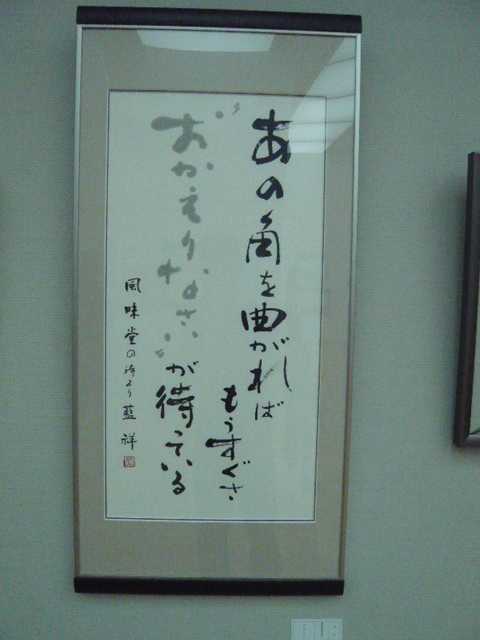 あの角を曲がれば
もうすぐさ
“おかえりなさい”
が待っている
風味堂の詩より 藍祥